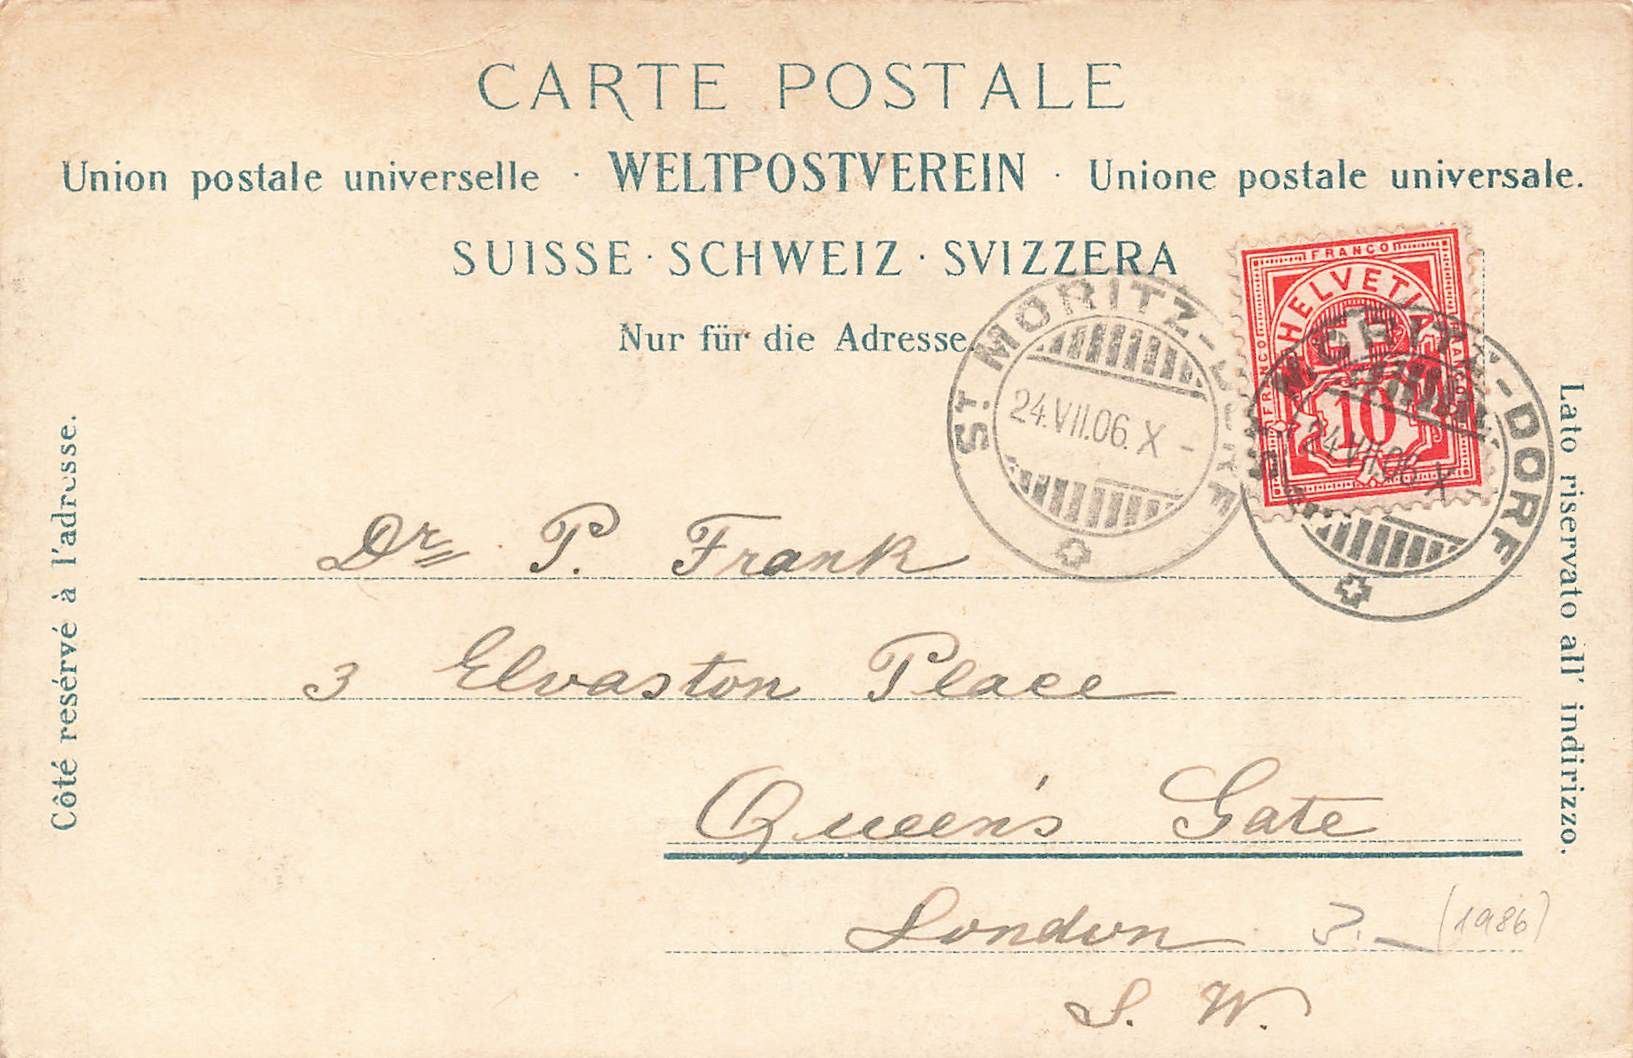 CARTE POSTALE
Union postale universelle · WELTPOSTVEREIN · Unione postale universale.
SUISSE · SCHWEIZ · SVIZZERA
Nur für die Adresse.
FRANCO
HELVETIA
FRANCO
FRANCO
10
ST. MORITZ-DORF
24.VII.06. X -
ST. MORITZ-DORF
24.VII.06. X
Côté resérvé à l'adresse.
Lato riservato all' indirizzo.
Dr. P. Frank
3 Elvaston Place
Queen's Gate
London 3.— (1986)
S. W.